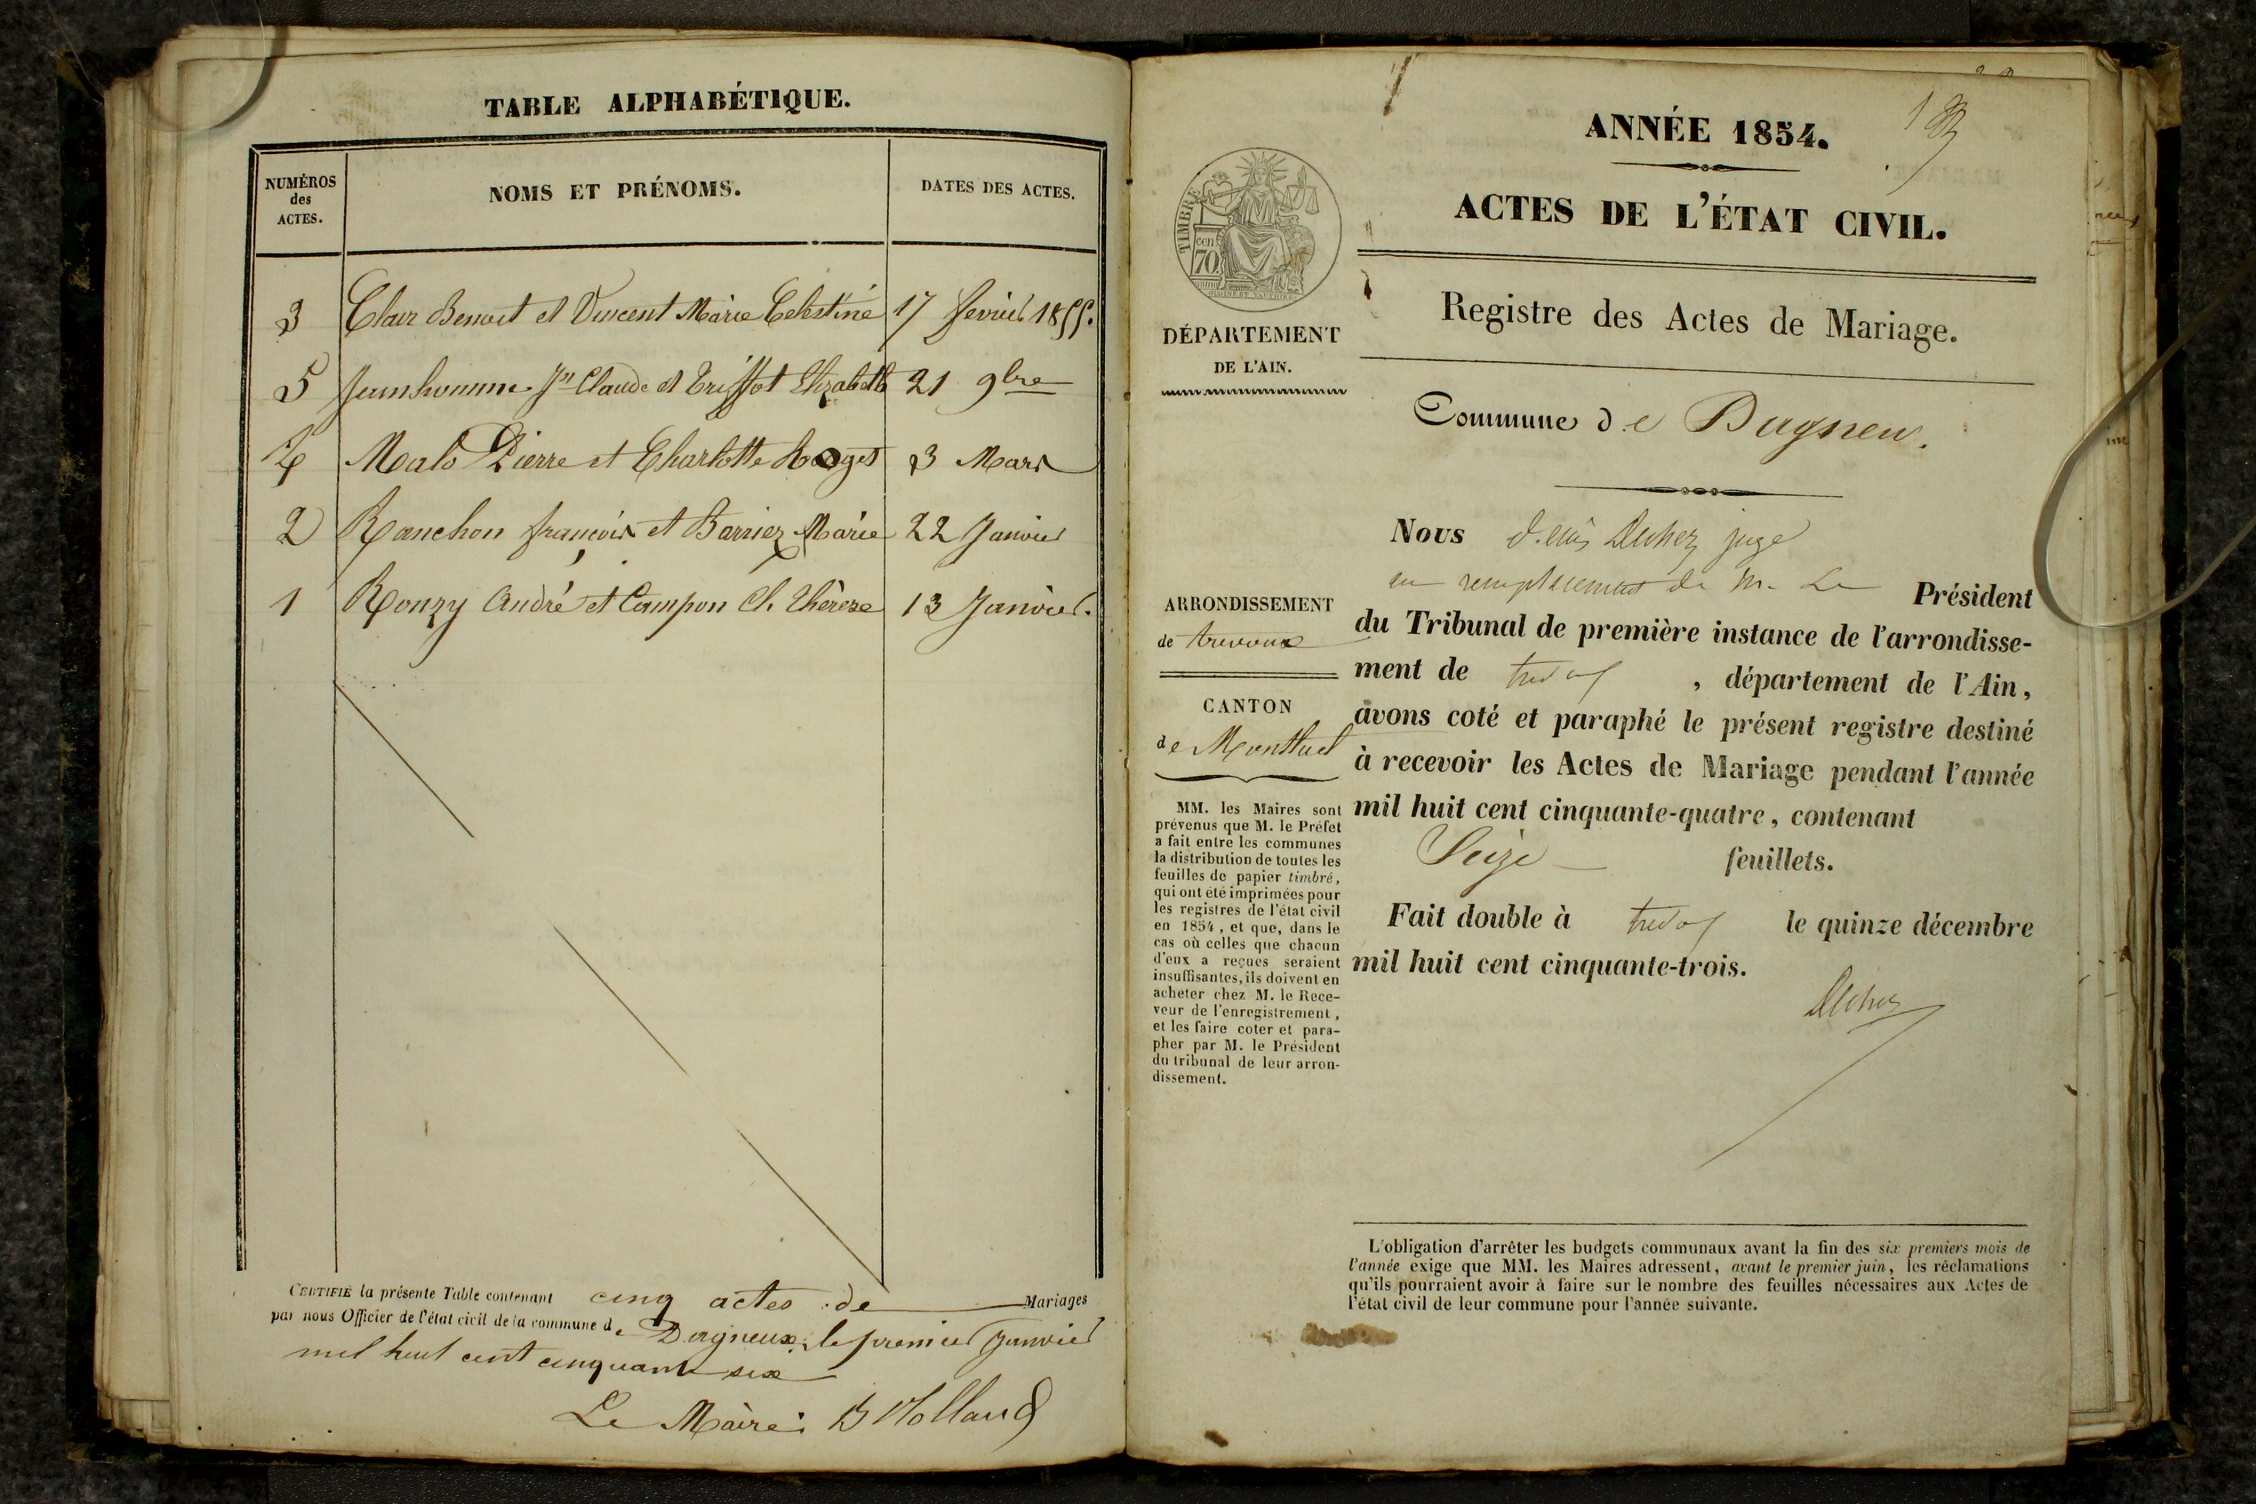 TABLE ALPHABÉTIQUE.
NUMÉROS
des
ACTES.
NOMS ET PRÉNOMS.
DATES DES ACTES.
3 Clair Benoit et Vincent Marie Celestine 17 fevrier 1855.
5 Jeunhomme Jn Claude et Elizabeth 21 9bre
4 Malo Pierre et Charlotte 3 Mars
2 Ranchon françois et Barriez Marie 22 Janvier
1 Ronzy André et Campon Ch. Thèreze 13 Janvier.
CERTIFIÉ la présente Table contenant cinq actes de Mariages
par nous Officier de l'état civil de la commune de Dagneux, le premier Janvier
mil huit cent cinquante six
Le Maire: Holland
ANNÉE 1854.
ACTES DE L'ÉTAT CIVIL.
Registre des Actes de Mariage.
Commune de Dagneux.
TIMBRE
70
cen
DÉPARTEMENT
DE L'AIN.
ARRONDISSEMENT
de trevoux
CANTON
de Montluel
MM. les Maires sont
prévenus que M. le Préfet
a fait entre les communes
la distribution de toutes les
feuilles de papier timbré,
qui ont été imprimées pour
les registres de l'état civil
en 1854, et que, dans le
cas où celles que chacun
d'eux a reçues seraient
insuffisantes, ils doivent en
acheter chez M. le Rece-
veur de l'enregistrement,
et les faire coter et para-
pher par M. le Président
du tribunal de leur arron-
dissement.
Nous denis juge
en remplacement de M. Le Président
du Tribunal de première instance de l'arrondisse-
ment de , département de l'Ain,
avons coté et paraphé le présent registre destiné
à recevoir les Actes de Mariage pendant l'année
mil huit cent cinquante-quatre, contenant
Seize feuillets.
Fait double à le quinze décembre
mil huit cent cinquante-trois.
L'obligation d'arrêter les budgets communaux avant la fin des six premiers mois de
l'année exige que MM. les Maires adressent, avant le premier juin, les réclamations
qu'ils pourraient avoir à faire sur le nombre des feuilles nécessaires aux Actes de
l'état civil de leur commune pour l'année suivante.